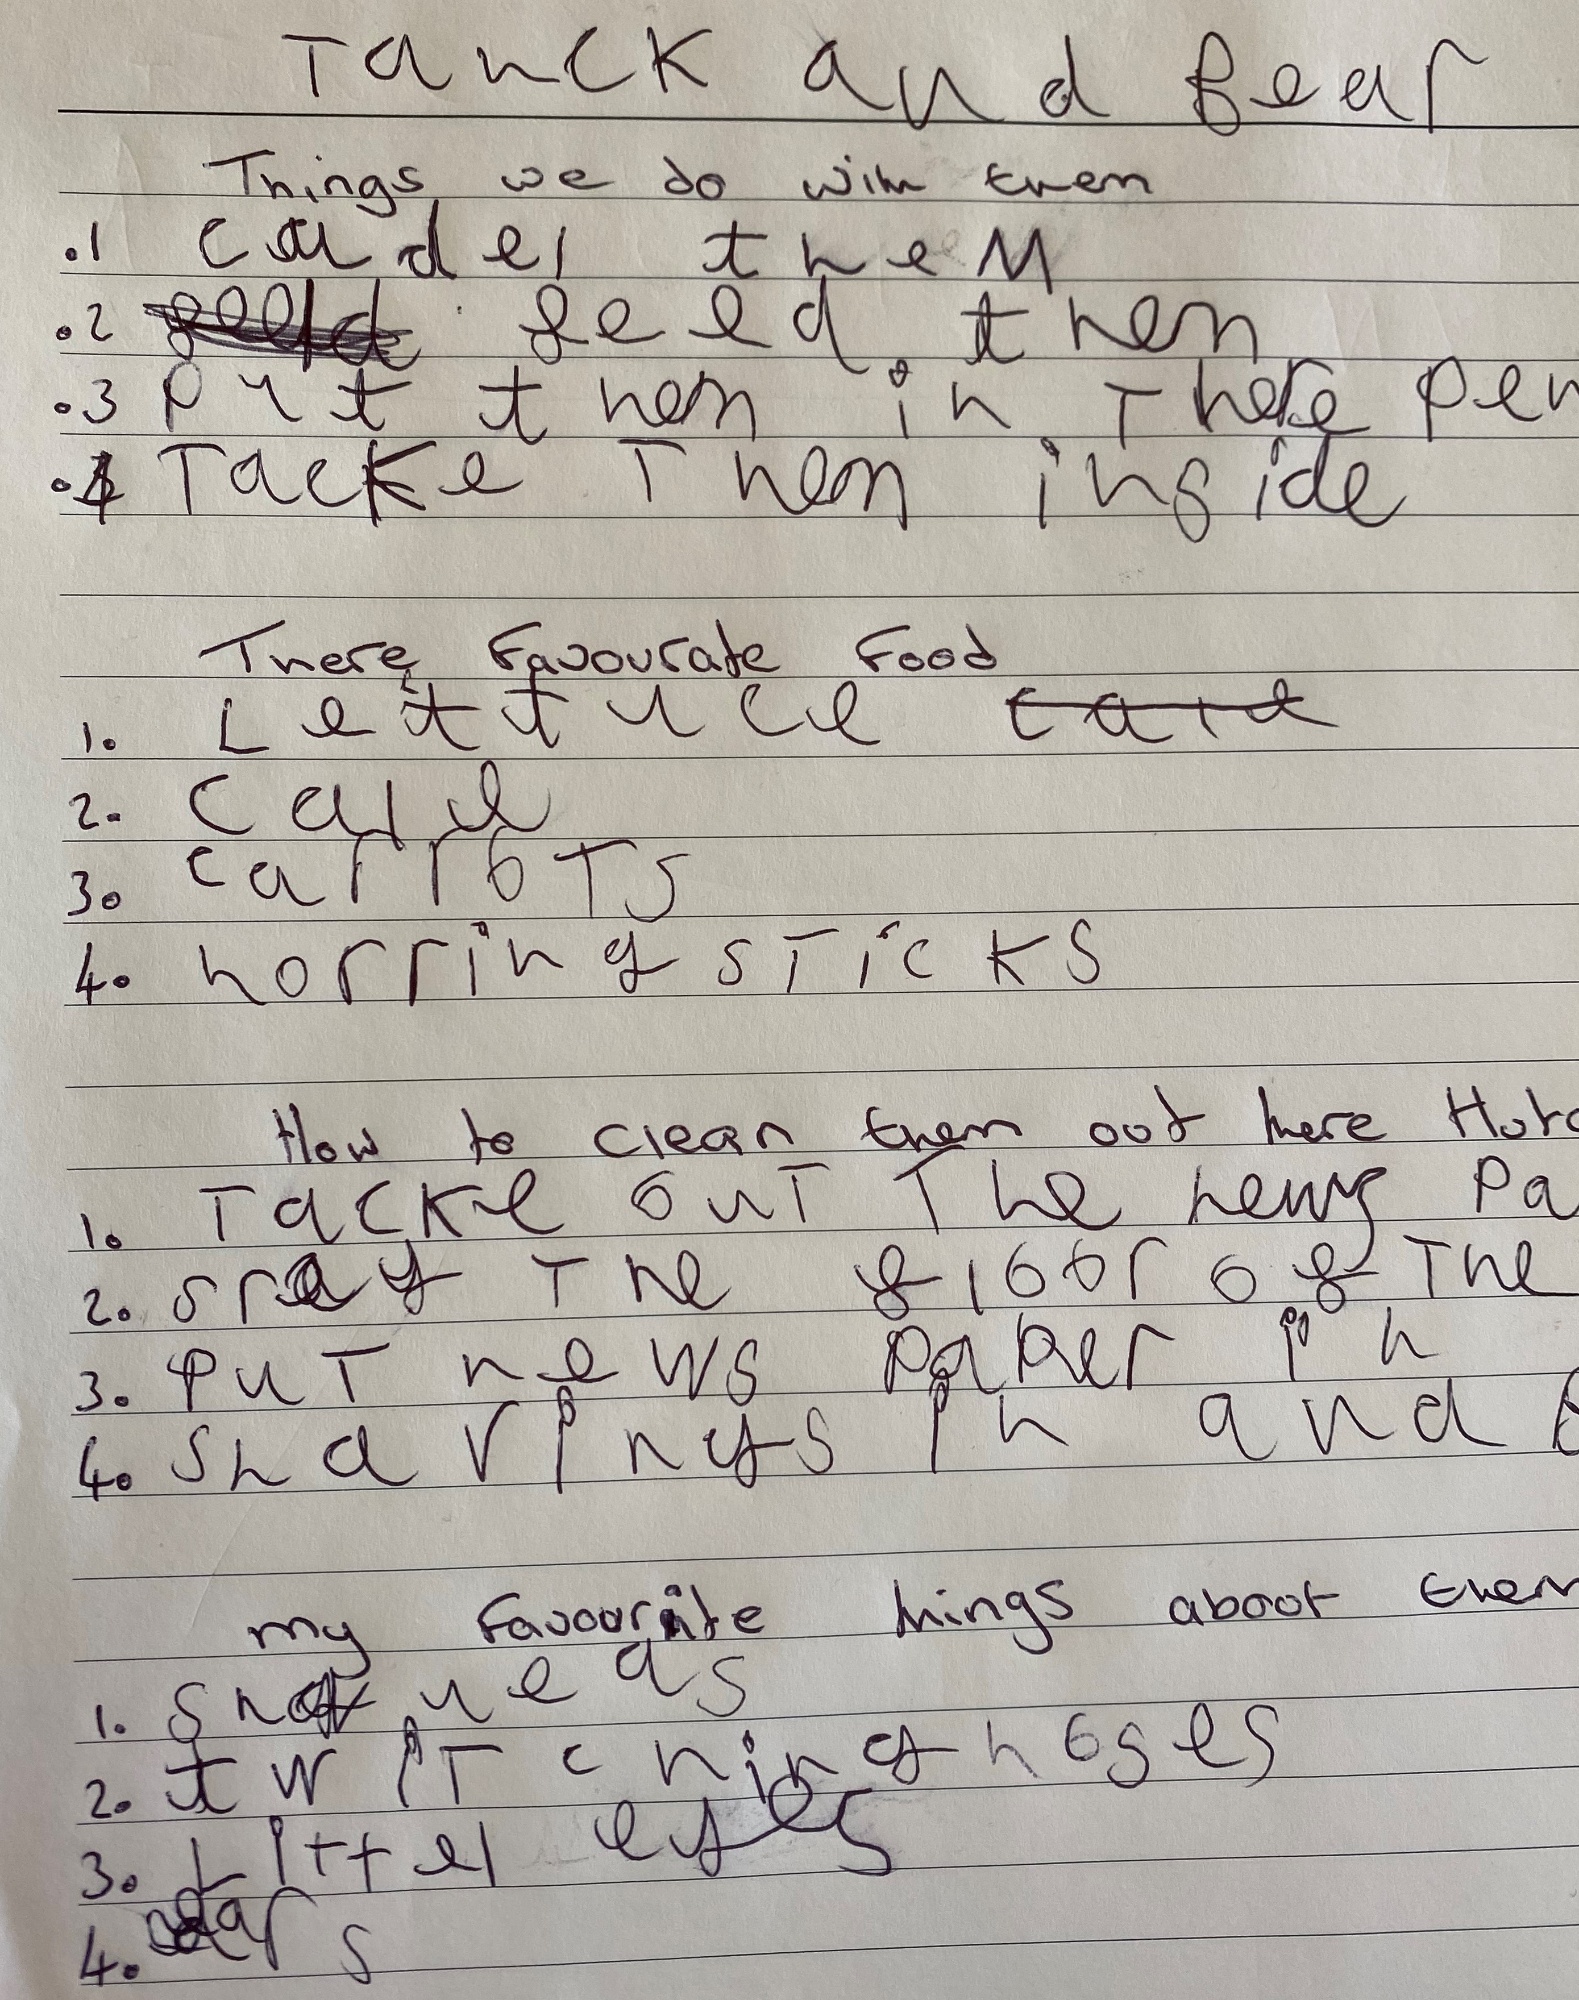 Tanck and Bear
Things we do with them
.1 cudel them
.2 feed them
.3 Put them in There Pen
.4 Tacke Them inside
There Favourate Food
1. Lettuce
2. Cale
3. carrots
4. norring sticks
How to clean them out there Hutc
1. Tacke out The news Pa
2. sray The floor of The
3. Put news Paper in
4. shavings in and
my Favourite things about them
1.
2. twitching noses
3. Littel eyes
4. ears